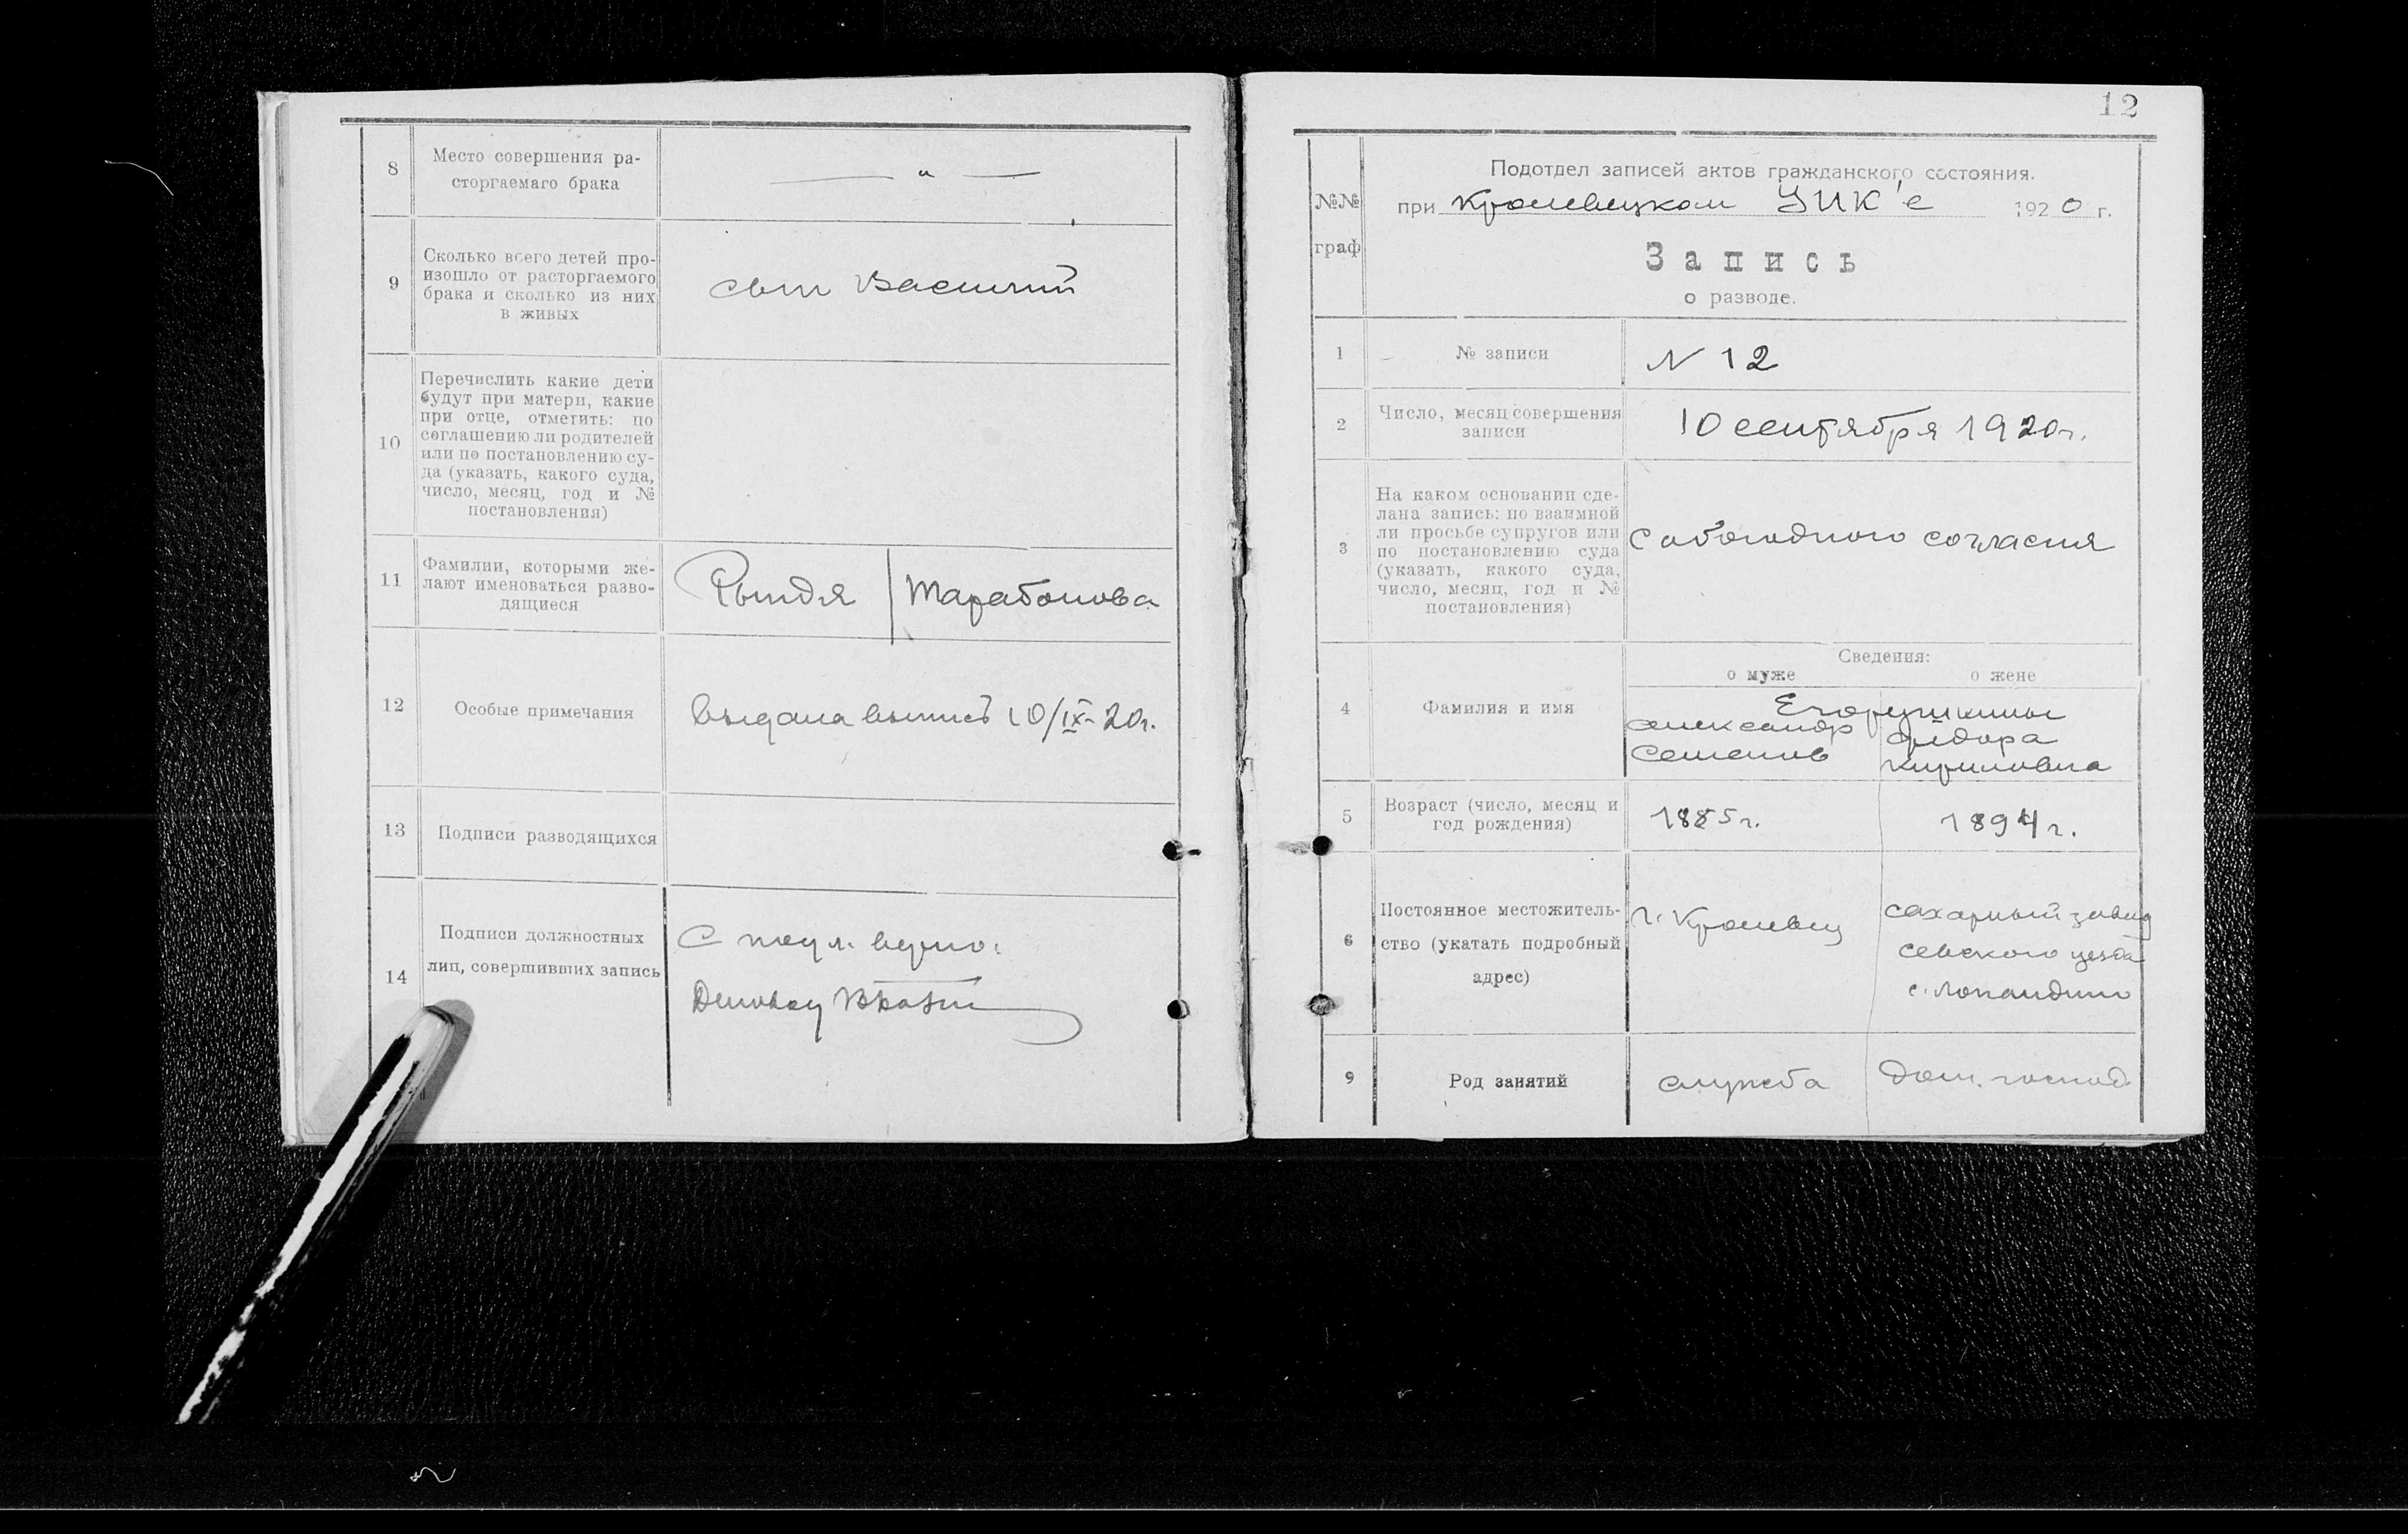 8
Место совершения ра-
сторгаемаго брака
— „ —
9
Сколько всего детей про-
изошло от расторгаемого
брака и сколько из них
в живых
сын Василий
10
Перечислить какие дети
будут при матери, какие
при отце, отметить: по
соглашению ли родителей
или по постановлению су-
да (указать, какого суда,
число, месяц, год и №
постановления)
11
Фамилии, которыми же-
лают именоваться разво-
дящиеся
Рындя | Тарабонова
12
Особые примечания
Выдана выпись 10/IX-20г.
13
Подписи разводящихся
14
Подписи должностных
лиц, совершивших запись
С подл. верно:
12
№№
граф
Подотдел записей актов гражданского состояния.
при Кролевецком УИК'е 1920 г.
Запись
о разводе.
1
№ записи
N 12
2
Число, месяц совершения
записи
10 сентября 1920г.
3
На каком основании сде-
лана запись: по взаимной
ли просьбе супругов или
по постановлению суда
(указать, какого суда,
число, месяц, год и №
постановления)
С обоюдного согласия
Сведения:
о муже о жене
4
Фамилия и имя
Егорушкины
Александр
Семенов
Федора
Кириловна
5
Возраст (число, месяц и
год рождения)
1885г. 1894г.
6
Постоянное местожитель-
ство (укатать подробный
адрес)
г. Кролевец
сахарный завод
Севского уезда
с. Лопандино
9
Род занятий
служба
Дом. господ.